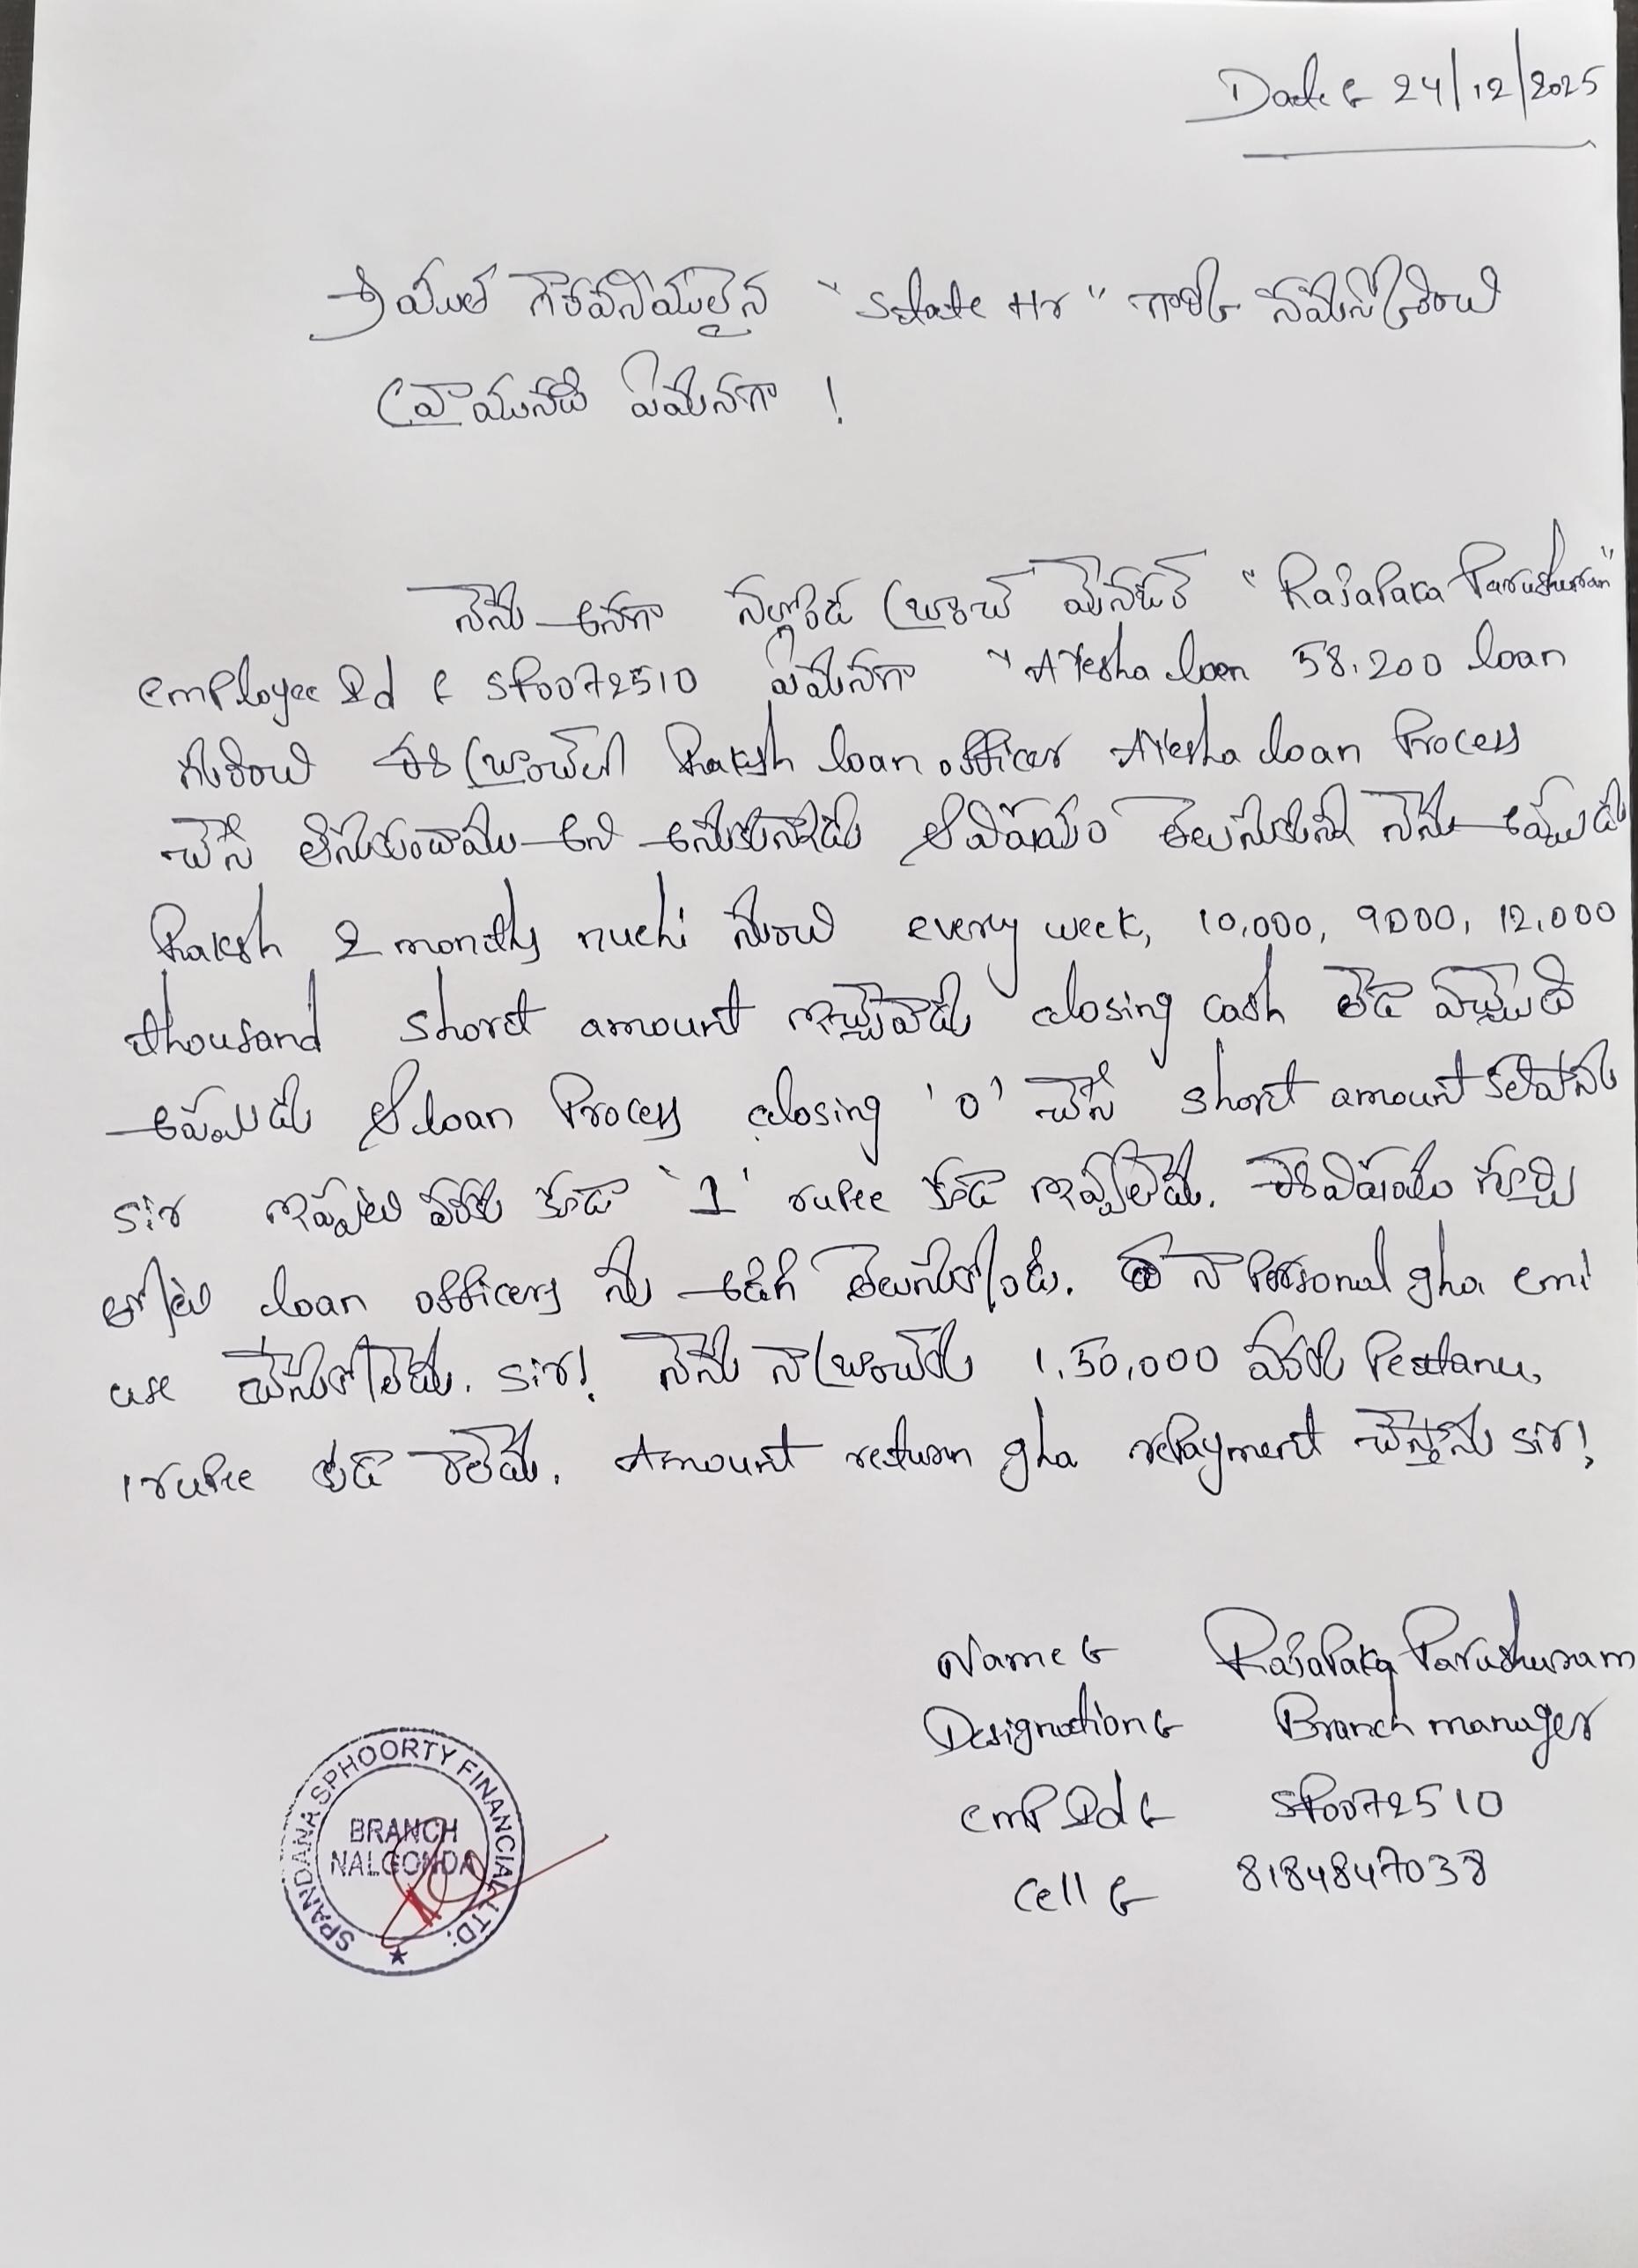 Date 24/12/2025
శ్రీయుత గౌరవనీయులైన "State Hr" గారికి నమస్కరించి
వ్రాయునది ఏమనగా !
నేను అనగా నల్గొండ బ్రాంచ్ మేనేజర్ "RajaPaka Parushuram"
employee Id : SF0072510 ఏమనగా "Ayesha loan 58,200 loan
గురించి ఈ బ్రాంచ్‌లో Rakesh loan officer Ayesha loan Process
చేసి తీసుకుందాము అని అనుకున్నాడు ఆ విషయం తెలుసుకుని నేను అప్పుడు
Rakesh 2 months nuchi నుంచి every week, 10,000, 9000, 12,000
thousand short amount ఇచ్చేవాడు closing cash తేడా వచ్చేది
అప్పుడు ఆ loan Process closing '0' చేసి short amount కలిపాను
sir ఇప్పటి వరకు కూడా '1' rupee కూడా ఇవ్వలేదు. ఈ విషయం గూర్చి
తోటి loan officers ను అడిగి తెలుసుకోండి. నా Personal gha emi
use చేసుకోలేదు. sir! నేను నా బ్రాంచ్‌కు 1,50,000 వరకు Pettanu,
1 rupee కూడా రాలేదు. Amount return gha repayment చేస్తాను sir!
Name RajaPaka Parushuram
Designation Branch manager
emP Id SF0072510
Cell 8184847038
SPANDANA SPHOORTY FINANCIAL LTD.
BRANCH
NALGONDA